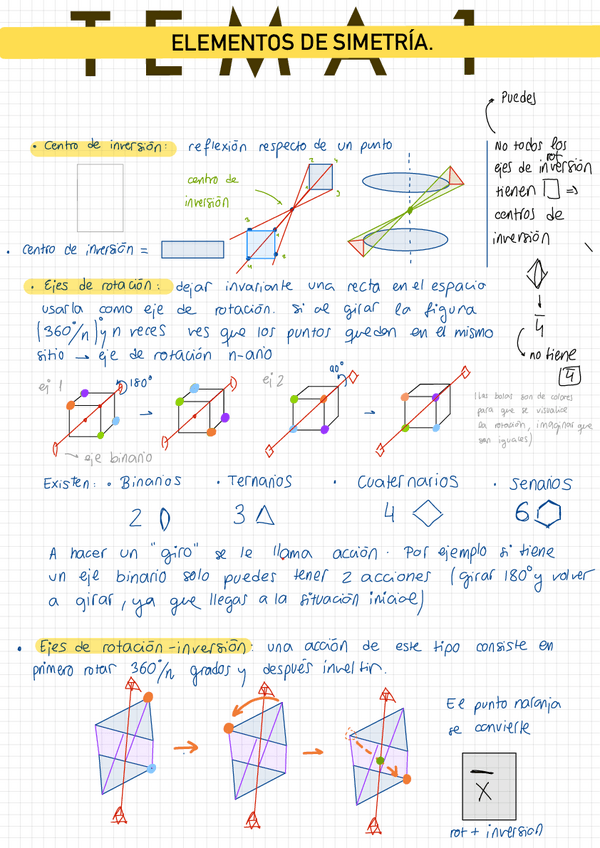 TEMA 1
ELEMENTOS DE SIMETRÍA.
Puedes
• Centro de inversión: reflexión respecto de un punto
centro de
inversión
No todos los
rot
ejes de inversión
tienen □ ⇒
centros de
inversión
• Centro de inversión =
4̅
no tiene
4
• Ejes de rotación: dejar invariante una recta en el espacio
usarla como eje de rotación. Si al girar la figura
(360°/n) y n veces ves que los puntos quedan en el mismo
sitio → eje de rotación n-ario
ej 1
180°
ej 2
90°
(Las bolas son de colores
para que se visualice
la rotación, imaginar que
son iguales)
→ eje binario
Existen: • Binarios • Ternarios • Cuaternarios • Senarios
2 3 4 6
A hacer un "giro" se le llama acción. Por ejemplo si tiene
un eje binario solo puedes tener 2 acciones (girar 180° y volver
a girar, ya que llegas a la situación inicial)
• Ejes de rotación-inversión: una acción de este tipo consiste en
primero rotar 360°/n grados y después invertir.
El punto naranja
se convierte
x̅
rot + inversion